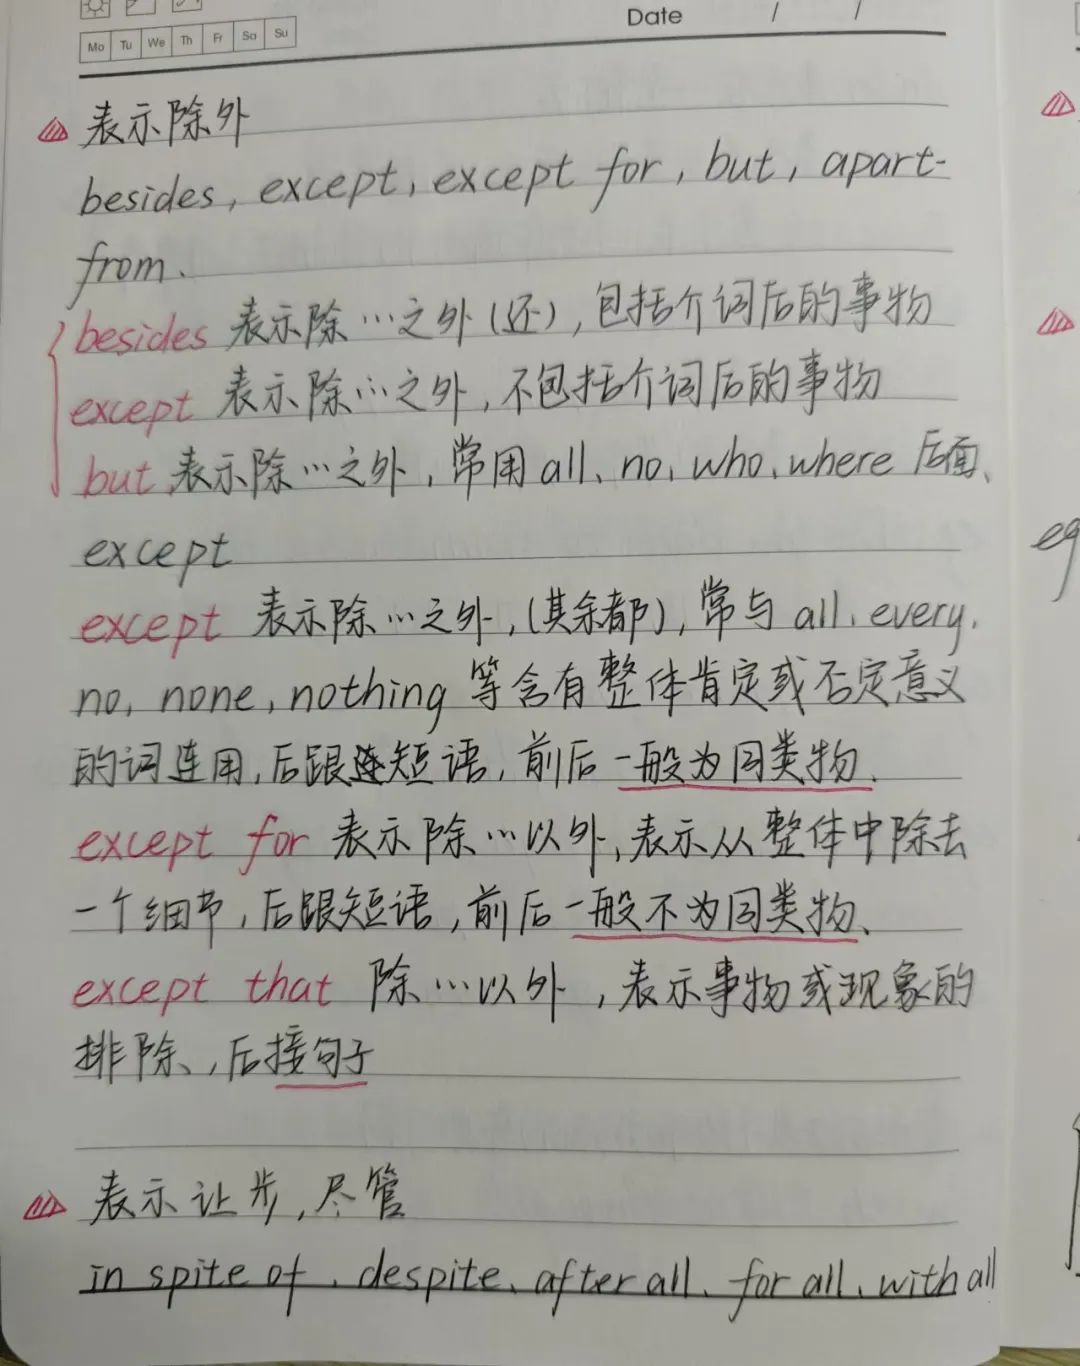 Date / /
Mo Tu We Th Fr Sa Su
表示除外
besides, except, except for, but, apart-
from.
besides 表示除…之外(还),包括介词后的事物
except 表示除…之外,不包括介词后的事物
but 表示除…之外,常用all、no、who、where 后面、
except
except 表示除…之外,(其余都),常与 all、every,
no, none, nothing 等含有整体肯定或否定意义
的词连用,后跟短语,前后一般为同类物、
except for 表示除…以外,表示从整体中除去
一个细节,后跟短语,前后一般不为同类物、
except that 除…以外,表示事物或现象的
排除、,后接句子
表示让步,尽管
in spite of、despite、after all、for all、with all
eg